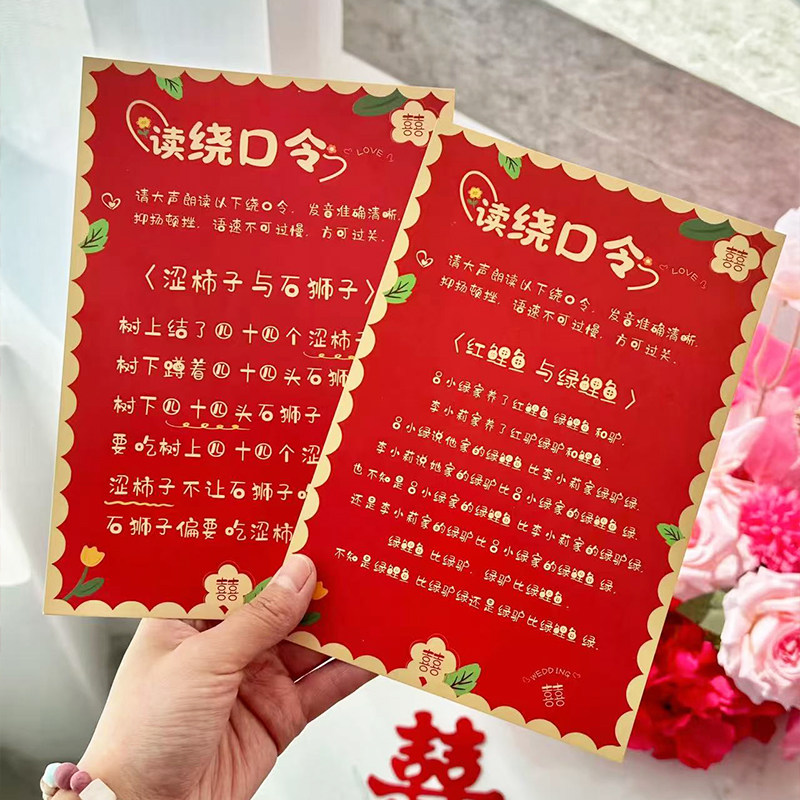 读绕口令
LOVE
囍
请大声朗读以下绕口令,发音准确清晰,
抑扬顿挫,语速不可过慢,方可过关。
〈涩柿子与石狮子〉
树上结了四十四个涩柿子
树下蹲着四十四头石狮
树下四十四头石狮子
要吃树上四十四个涩
涩柿子不让石狮子
石狮子偏要吃涩柿
囍
读绕口令
LOVE
囍
请大声朗读以下绕口令,发音准确清晰,
抑扬顿挫,语速不可过慢,方可过关。
〈红鲤鱼与绿鲤鱼〉
吕小绿家养了红鲤鱼绿鲤鱼和驴,
李小莉家养了红驴绿驴和鲤鱼,
吕小绿说他家的绿鲤鱼比李小莉家绿驴绿,
李小莉说她家的绿驴比吕小绿家的绿鲤鱼绿,
也不知是吕小绿家的绿鲤鱼比李小莉家的绿驴绿,
还是李小莉家的绿驴比吕小绿家的绿鲤鱼绿,
绿鲤鱼比绿驴,绿驴比绿鲤鱼,
不知是绿鲤鱼比绿驴绿还是绿驴比绿鲤鱼绿。
囍
WEDDING
囍
囍